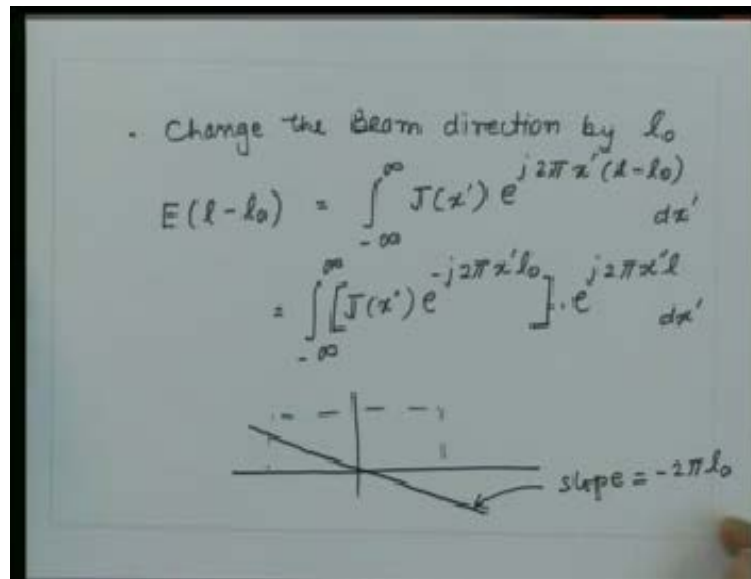 . Change the Beam direction by l₀
E(l-l₀) = ∫_{-∞}^{∞} J(x') e^{j2πx'(l-l₀)} dx'
= ∫_{-∞}^{∞} [J(x') e^{-j2πx'l₀}] . e^{j2πx'l} dx'
slope = -2πl₀